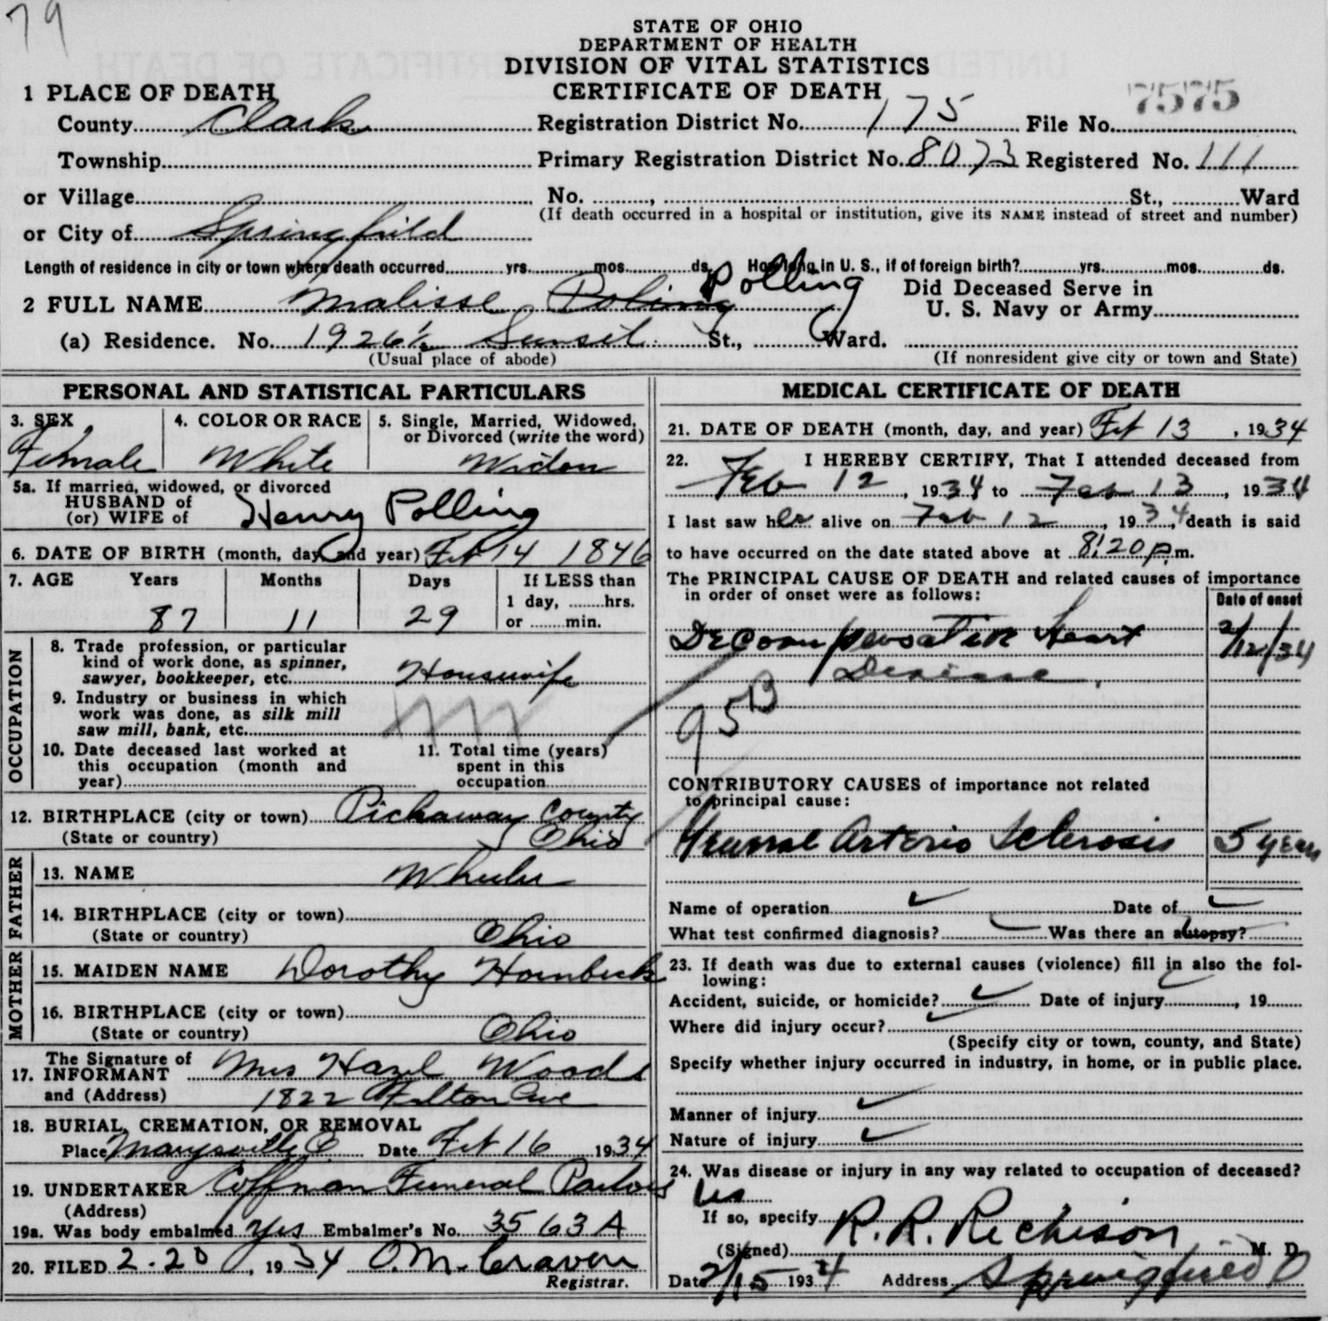 79
STATE OF OHIO
DEPARTMENT OF HEALTH
DIVISION OF VITAL STATISTICS
CERTIFICATE OF DEATH
7575
1 PLACE OF DEATH
County Clark Registration District No. 175 File No.
Township Primary Registration District No. 8073 Registered No. 111
or Village No. , St., Ward
(If death occurred in a hospital or institution, give its NAME instead of street and number)
or City of Springfield
Length of residence in city or town where death occurred yrs. mos. ds. How long in U. S., if of foreign birth? yrs. mos. ds.
2 FULL NAME Malisse Poling Polling Did Deceased Serve in
U. S. Navy or Army
(a) Residence. No. 1926½ Sunset St., Ward.
(Usual place of abode) (If nonresident give city or town and State)
PERSONAL AND STATISTICAL PARTICULARS
3. SEX 4. COLOR OR RACE 5. Single, Married, Widowed,
or Divorced (write the word)
Female White Widow
5a. If married, widowed, or divorced
HUSBAND of
(or) WIFE of Henry Polling
6. DATE OF BIRTH (month, day and year) Feb 14 1846
7. AGE Years Months Days If LESS than
1 day, hrs.
or min.
87 11 29
OCCUPATION
8. Trade profession, or particular
kind of work done, as spinner,
sawyer, bookkeeper, etc. Housewife
9. Industry or business in which
work was done, as silk mill
saw mill, bank, etc.
10. Date deceased last worked at
this occupation (month and
year)
11. Total time (years)
spent in this
occupation
12. BIRTHPLACE (city or town) Pickaway County
(State or country) Ohio
FATHER
13. NAME Wheeler
14. BIRTHPLACE (city or town)
(State or country) Ohio
MOTHER
15. MAIDEN NAME Dorothy Hornbeck
16. BIRTHPLACE (city or town)
(State or country) Ohio
The Signature of
17. INFORMANT Mrs Hazel Woods
and (Address) 1822 Ave
18. BURIAL, CREMATION, OR REMOVAL
Place Marysville O Date Feb 16 1934
19. UNDERTAKER Coffman Funeral Parlors
(Address)
19a. Was body embalmed yes Embalmer's No. 3563 A
20. FILED 2-20, 1934 O.M. Craven
Registrar.
MEDICAL CERTIFICATE OF DEATH
21. DATE OF DEATH (month, day, and year) Feb 13, 1934
22. I HEREBY CERTIFY, That I attended deceased from
Feb 12, 1934 to Feb 13, 1934
I last saw her alive on Feb 12, 1934, death is said
to have occurred on the date stated above at 8:20 p.m.
The PRINCIPAL CAUSE OF DEATH and related causes of importance
in order of onset were as follows:
Date of onset
Decompensation Heart 2/12/34
Disease.
95B
CONTRIBUTORY CAUSES of importance not related
to principal cause:
General Arterio Sclerosis 5 years
Name of operation ✓ Date of ✓
What test confirmed diagnosis? Was there an autopsy?
23. If death was due to external causes (violence) fill in also the fol-
lowing:
Accident, suicide, or homicide? ✓ Date of injury , 19
Where did injury occur? ✓
(Specify city or town, county, and State)
Specify whether injury occurred in industry, in home, or in public place.
Manner of injury ✓
Nature of injury ✓
24. Was disease or injury in any way related to occupation of deceased?
If so, specify
(Signed) R. R. Richison M. D.
Date 2/15 1934 Address Springfield O